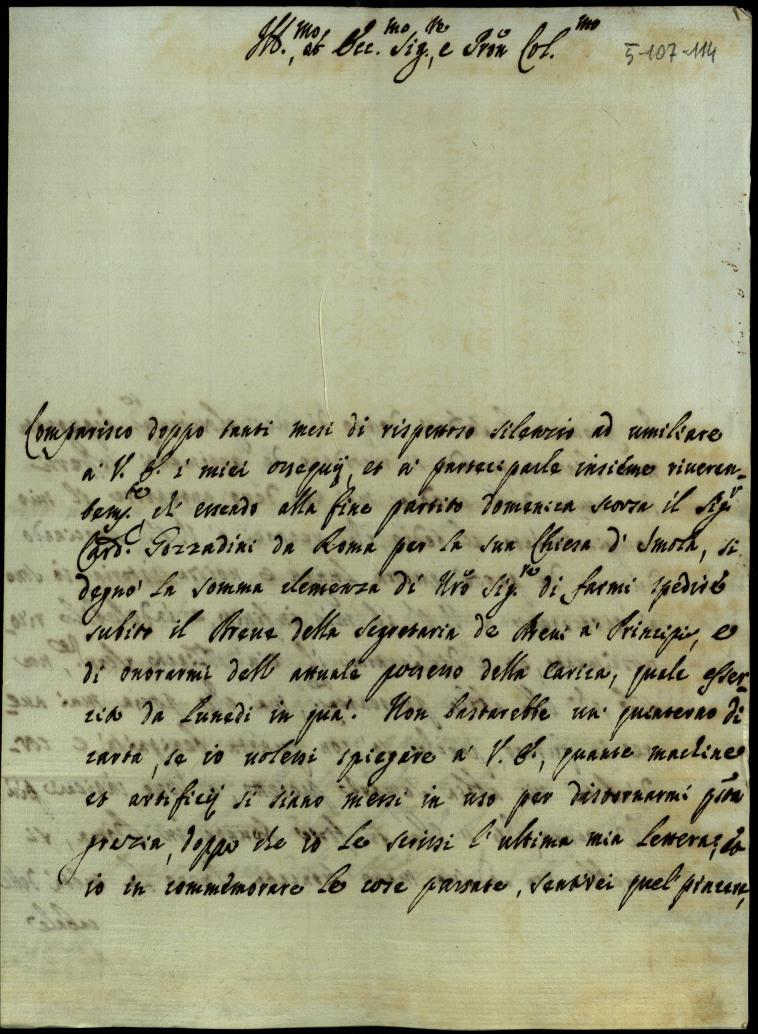 Ill.mo, et Ecc.mo Sig.re, e Pron Col.mo 5-107-114
Comparisco doppo tanti mesi di rispettoso silenzio ad umiliare
a' V. E. i miei ossequij, et a' parteciparle insieme riveren-
tem.te, ch'essendo alla fine partito domenica scorsa il Sig.r
Card. Gozzadini da Roma per la sua Chiesa d'Imola, si
degnò la somma clemenza di Nro Sig.re di farmi spedire
subito il Breve della segretaria de Brevi a' Principi, e
di onorarmi dell'attuale possesso della carica, quale esser-
cito da Lunedi in qua'. Non bastarebbe un' quinterno di
carta, se io volessi spiegare a' V. E., quante machine
et artificij si siano messi in uso per distornarmi qsta
grazia, doppo che io Le scrissi l'ultima mia lettera; et
io in commemorare le cose passate, sentirei quel piacere,